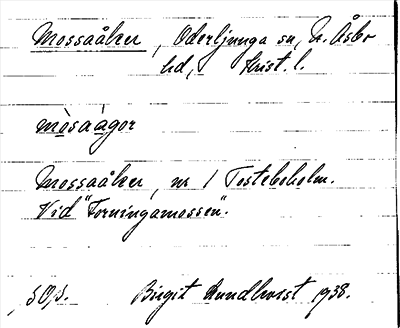 Mossaåker, Oderljunga sn, N. Åsbo
hd, Krist. l.
mòsaàgor
Mossaåker, nr 1 Tosteboholm.
Vid "Torningamossen".
Birgit Lundkvist 1938.